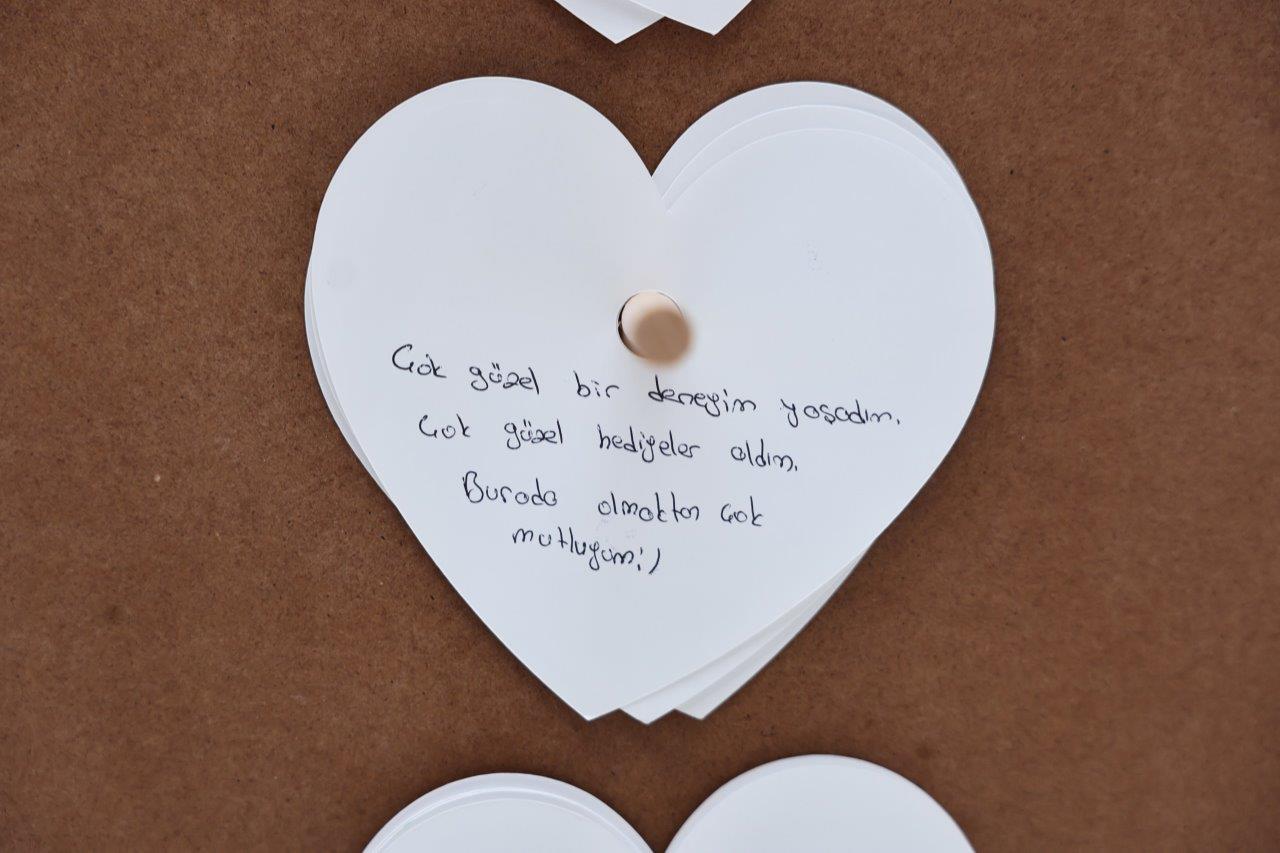 Çok güzel bir deneyim yaşadım.
Çok güzel hediyeler aldım.
Burada olmaktan çok
mutluyum:)